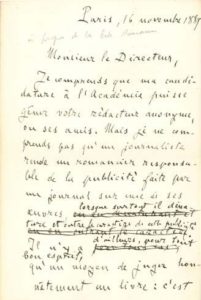 Paris, 16 novembre 1889
Monsieur le Directeur,
Je comprends que ma candi-
dature à l'Académie puisse
gêner votre rédacteur anonyme
ou ses amis. Mais je ne com-
prends pas qu'un journaliste
rende un romancier responsa-
ble de la publicité faite par
un journal sur une de ses
œuvres, lorsque surtout il
Il n'y a, d'ailleurs, pour tout
bon esprit,
qu'un moyen de juger hon-
nêtement un livre : c'est